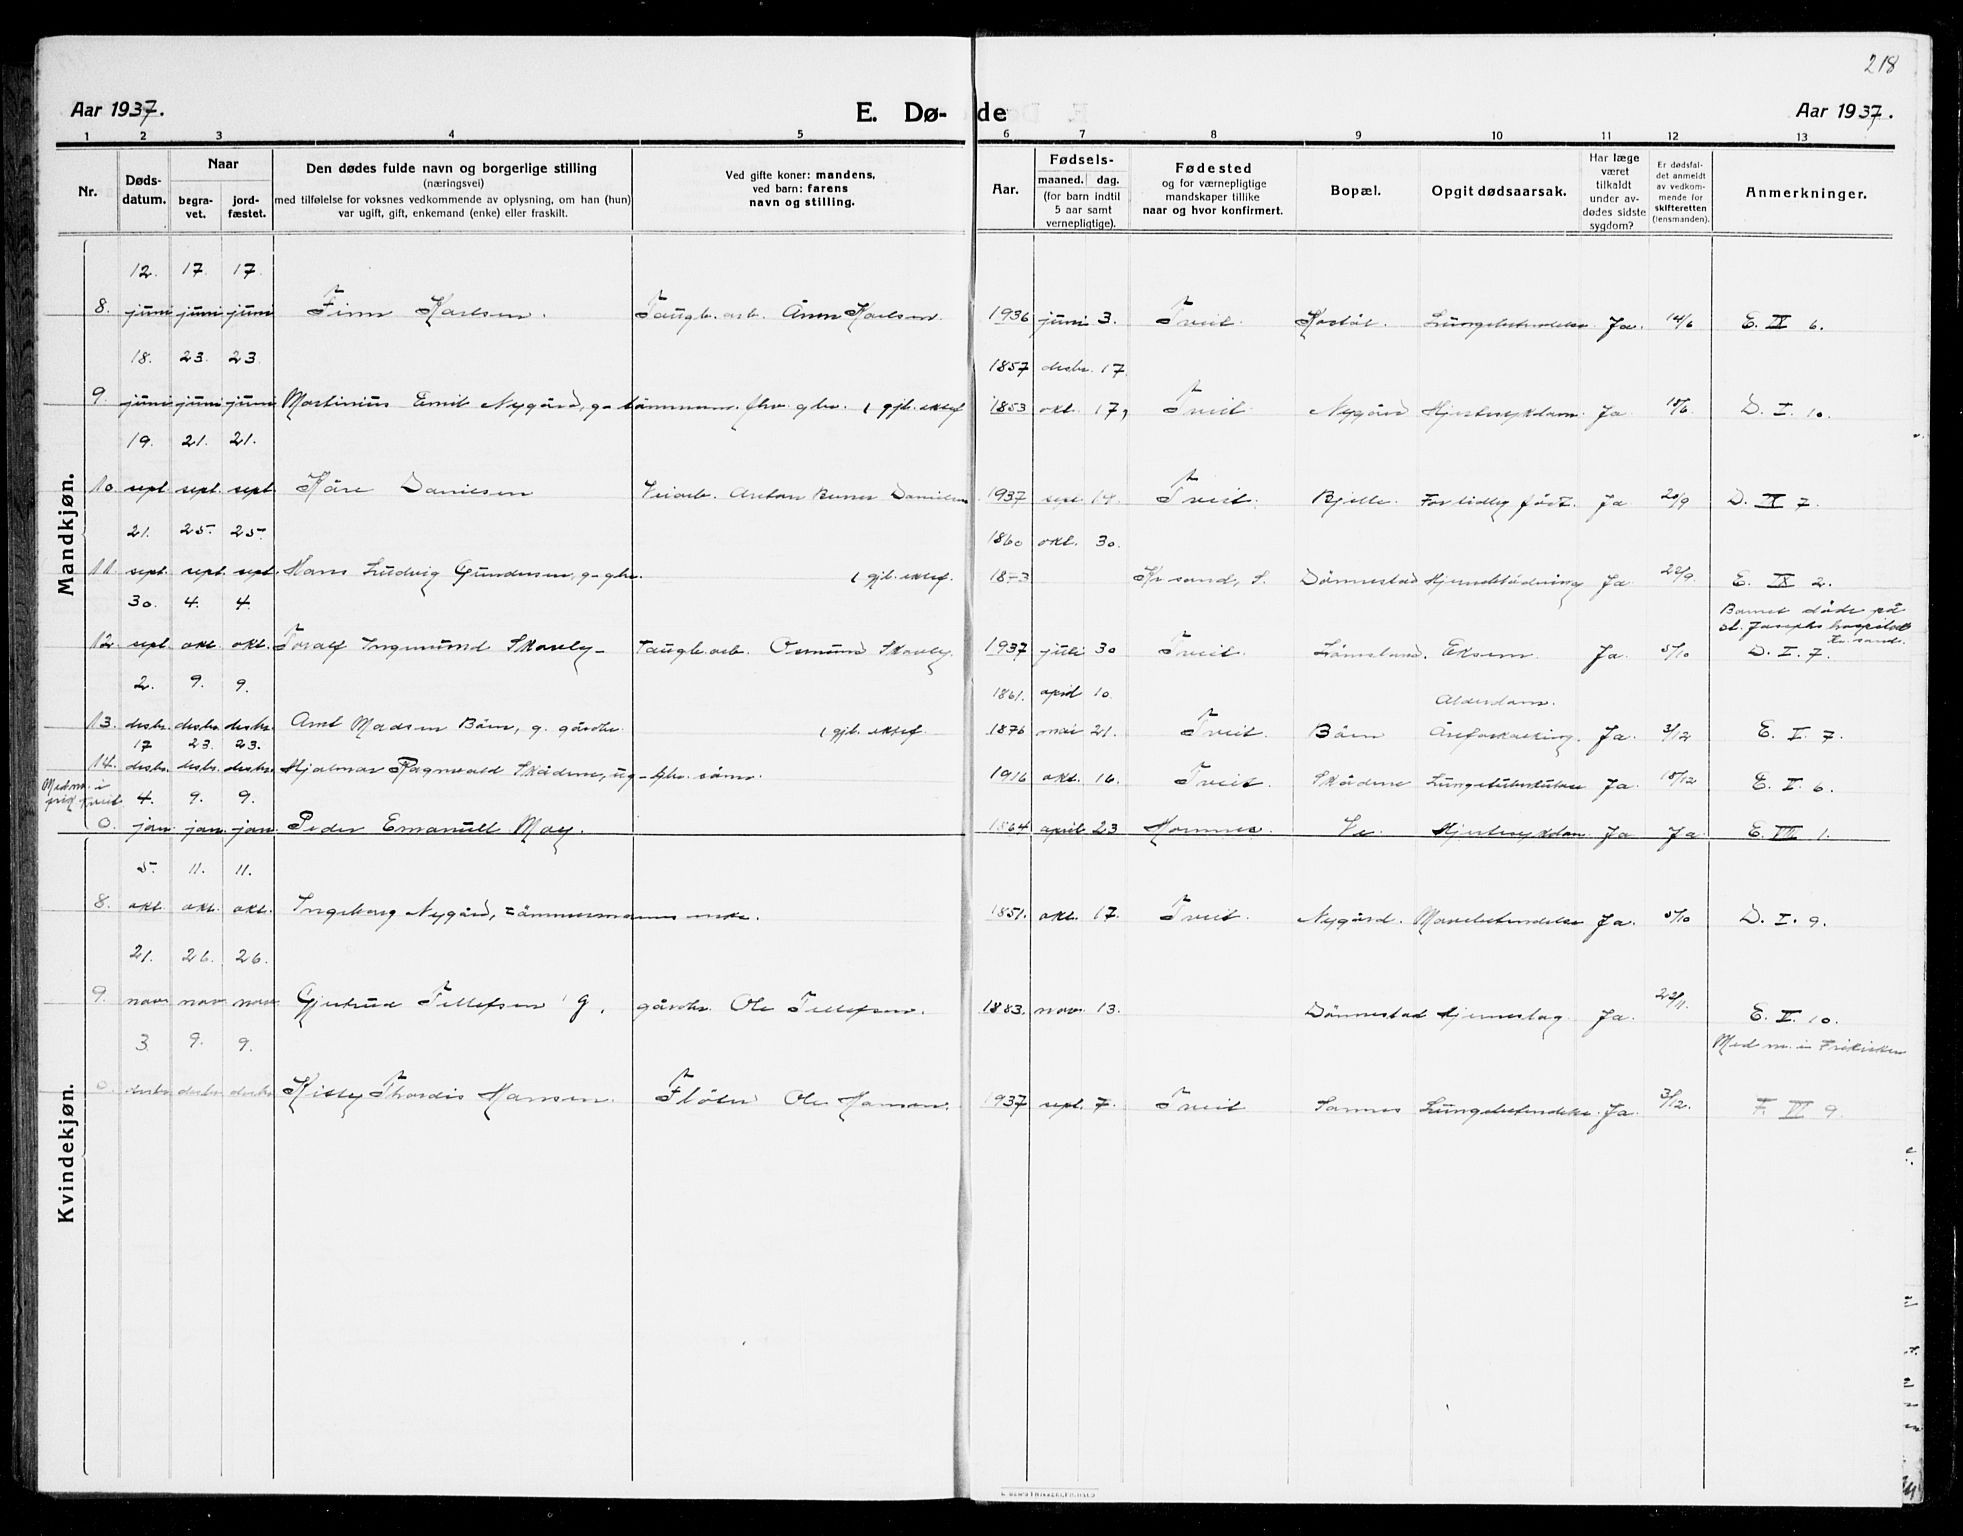 218
Aar 1937. E. Dø- de Aar 1937.
1 2 3 4 5 6 7 8 9 10 11 12 13
Nr.
Døds-
datum.
Naar
begra-
vet.
jord-
fæstet.
Den dødes fulde navn og borgerlige stilling
(næringsvei)
med tilføielse for voksnes vedkommende av oplysning, om han (hun)
var ugift, gift, enkemand (enke) eller fraskilt.
Ved gifte koner: mandens,
ved barn: farens
navn og stilling.
Aar.
Fødsels-
maaned. dag.
(for barn indtil
5 aar samt
vernepligtige).
Fødested
og for værnepligtige
mandskaper tillike
naar og hvor konfirmert.
Bopæl.
Opgit dødsaarsak.
Har læge
været
tilkaldt
under av-
dødes sidste
sygdom?
Er dødsfal-
det anmeldt
av vedkom-
mende for
skifteretten
(lensmanden).
Anmerkninger.
Mandkjøn.
12. 17. 17.
8. juni juni juni Finn Karlsen. Taugb. arb. Karlsen. 1936 juni 3. Tveit. Lungebetendelse Ja. 14/6 E. IX 6.
18. 23. 23. 1857 desbr. 17.
9. juni juni juni Martinius Emil Nygård, g. tömmerm. fhv. gbr. 1 gjl. ektef. 1853 okt. 17, Tveit. Nygård Hjertesykdom. Ja D. I. 10.
19. 21. 21.
10 sept. sept. sept. Kåre Danielsen Veiarb. Anton Danielsen 1937 sept. 19. Tveit. Bjelle. For tidlig født. Ja 20/9 D. 7.
21. 25. 25. 1860 okt. 30.
11. sept. sept. sept. Hans Ludvig Gundersen, g. gbr. 1 gjl. ektef. Kr. sand, S. Dönnestad Hjerneblödning Ja 22/9. E. IX 2.
30. 4. 4. Barnet døde på
St. Josephs hospital
Kr. sand.
12. sept. okt. okt. Toralf Ingmund Skovly Taugb. arb. Osmund Skovly. 1937 juli 30 Tveit. Eksem. Ja. 5/10 D. I. 7.
2. 9. 9. 1861. april 10. Alderdom.
13. desbr. desbr. desbr. Madsen Böen, g. gårdbr. 1 gjl. ektef. 1876 mai 21. Tveit. Böen Åreforkalkning. Ja. 3/12 E. I. 7.
17 23. 23.
14. desbr. desbr. desbr. Hjalmar Ragnvald Skådene, ug. gbr. sönn. 1916 okt. 16. Tveit. Skådene Lungetuberkulose Ja. 18/12 E. I. 6.
4. 9. 9.
0. jan. jan. jan. Peder Emanuell Moy. 1864 april 23 Hornnes. Ve. Hjertesykdom Ja Ja E. 1.
Kvindekjøn.
5. 11. 11.
8. okt. okt. okt. Ingeborg Nygård, tömmermanns enke. 1851. okt. 17. Tveit. Nygård. Mavebetendelse Ja. 5/10 D. I. 9.
21. 26. 26.
9. nov. nov. nov. Gjertrud Tellefsen g. gårdbr. Ole Tellefsen. 1883. nov. 13. Dönnestad Hjerneslag. Ja. 22/11. E. I. 10.
3. 9. 9. Med m. i Frikirken
0. desbr. desbr. desbr. Kitty Thordis Hansen. Fløter Ole Hansen. 1937 sept. 7. Tveit Sannes Lungebetendelse. Ja. 3/12. F. VI 9.